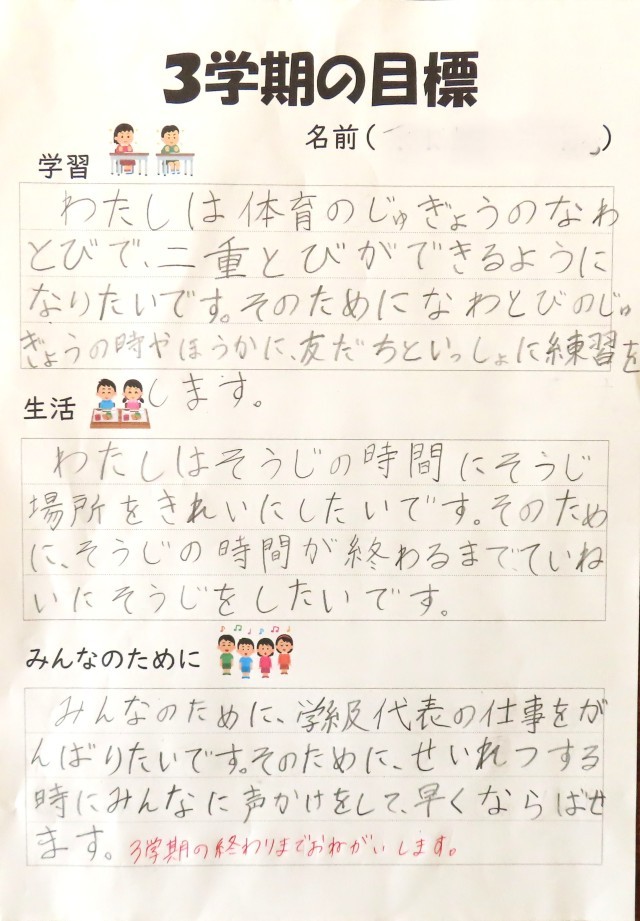 3学期の目標
名前( )
学習
わたしは体育のじゅぎょうのなわ
とびで、二重とびができるように
なりたいです。そのためになわとびのじゅ
ぎょうの時やほうかに、友だちといっしょに練習を
します。
生活
わたしはそうじの時間にそうじ
場所をきれいにしたいです。そのため
に、そうじの時間が終わるまで、ていね
いにそうじをしたいです。
みんなのために
みんなのために、学級代表の仕事をが
んばりたいです。そのために、せいれつする
時にみんなに声かけをして、早くならばせ
ます。3学期の終わりまでおねがいします。